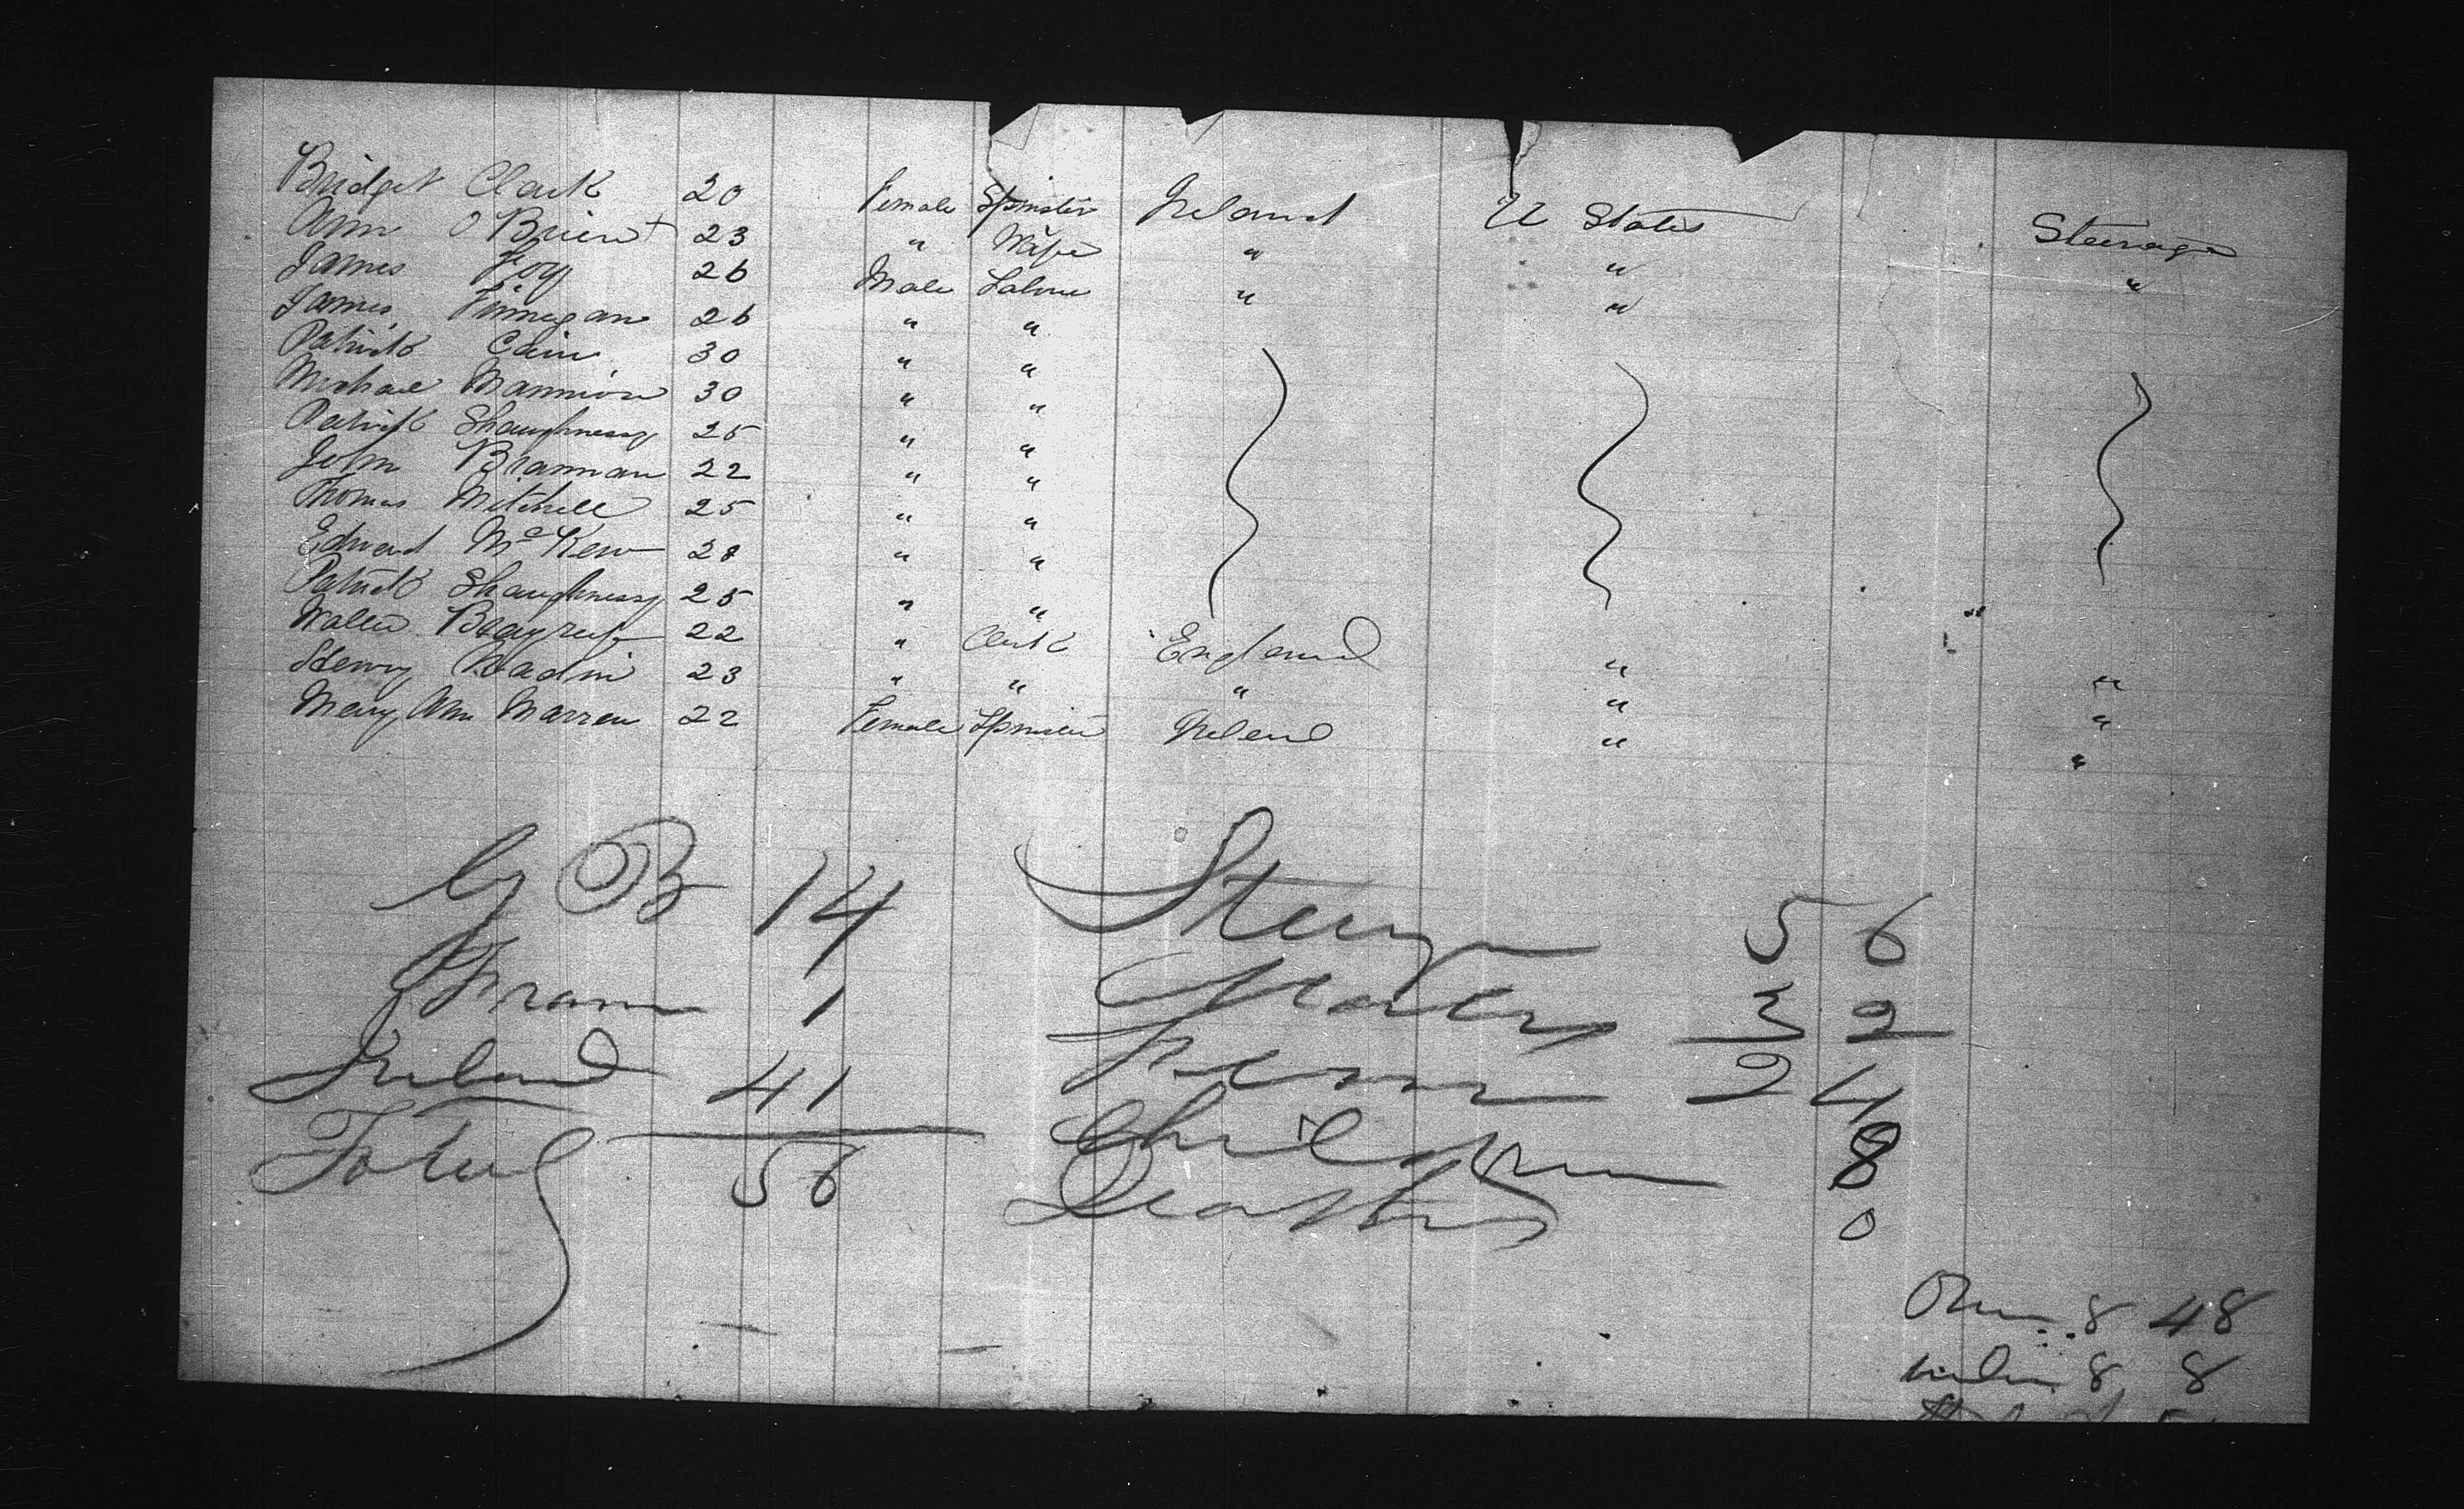 Bridget Clark 20 Female Spinster Ireland U States Steerage
Ann O Brien + 23 " Wife " " "
James Foy 26 Male Labour " "
James Finnegan 26 " "
Patrick Cain 30 " "
Michael Mannion 30 " "
Patrick Shaughnessy 25 " "
John Brannan 22 " "
Thomas Mitchell 25 " "
Edward McKew 28 " "
Patrick Shaughnessy 25 " "
Walter 22 " Clerk England " "
Henry 23 " " " " "
Mary Ann Marren 22 Female Spinster Ireland " "
G B 14 Steerage 56
France 1 Males 32
Ireland 41 Fem 24
Total 56 Children 8
Deaths 0
Over 8 48
under 8 8